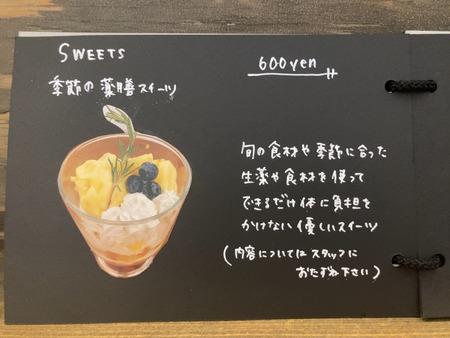 SWEETS
季節の薬膳スイーツ
600yen
旬の食材や季節に合った
生薬や食材を使って
できるだけ体に負担を
かけない優しいスイーツ
(内容についてはスタッフに
おたずね下さい)